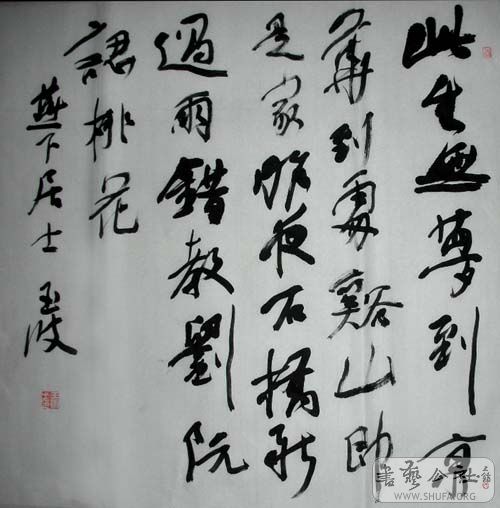 此生無夢到京
華到處谿山即
是家昨夜石橋新
過雨錯教劉阮
認桃花
燕下居士 玉波
書藝公社
WWW.SHUFA.ORG